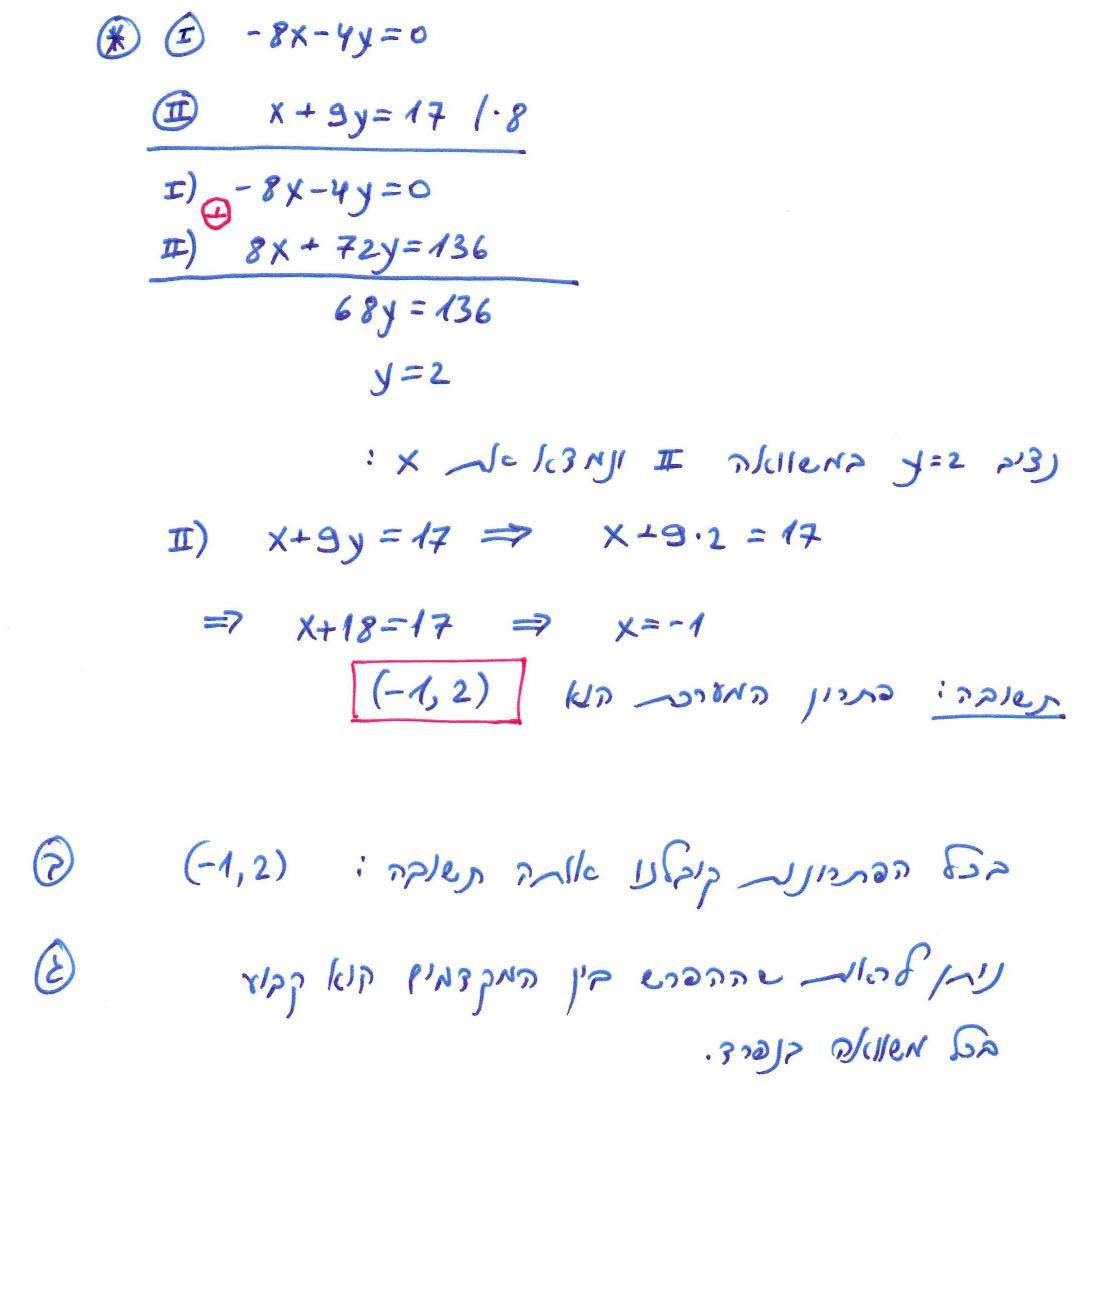 * I -8x-4y=0
II x+9y=17 /·8
I) -8x-4y=0
+
II) 8x+72y=136
68y=136
y=2
נציב y=2 במשוואה II ונמצא את x :
II) x+9y=17 ⇒ x+9·2=17
⇒ x+18=17 ⇒ x=-1
תשובה: פתרון המערכת הוא (-1, 2)
ב בכל הפתרונות קיבלנו אותה תשובה : (-1, 2)
ג ניתן לראות שההפרש בין המקדמים הוא קבוע
בכל משוואה בנפרד.